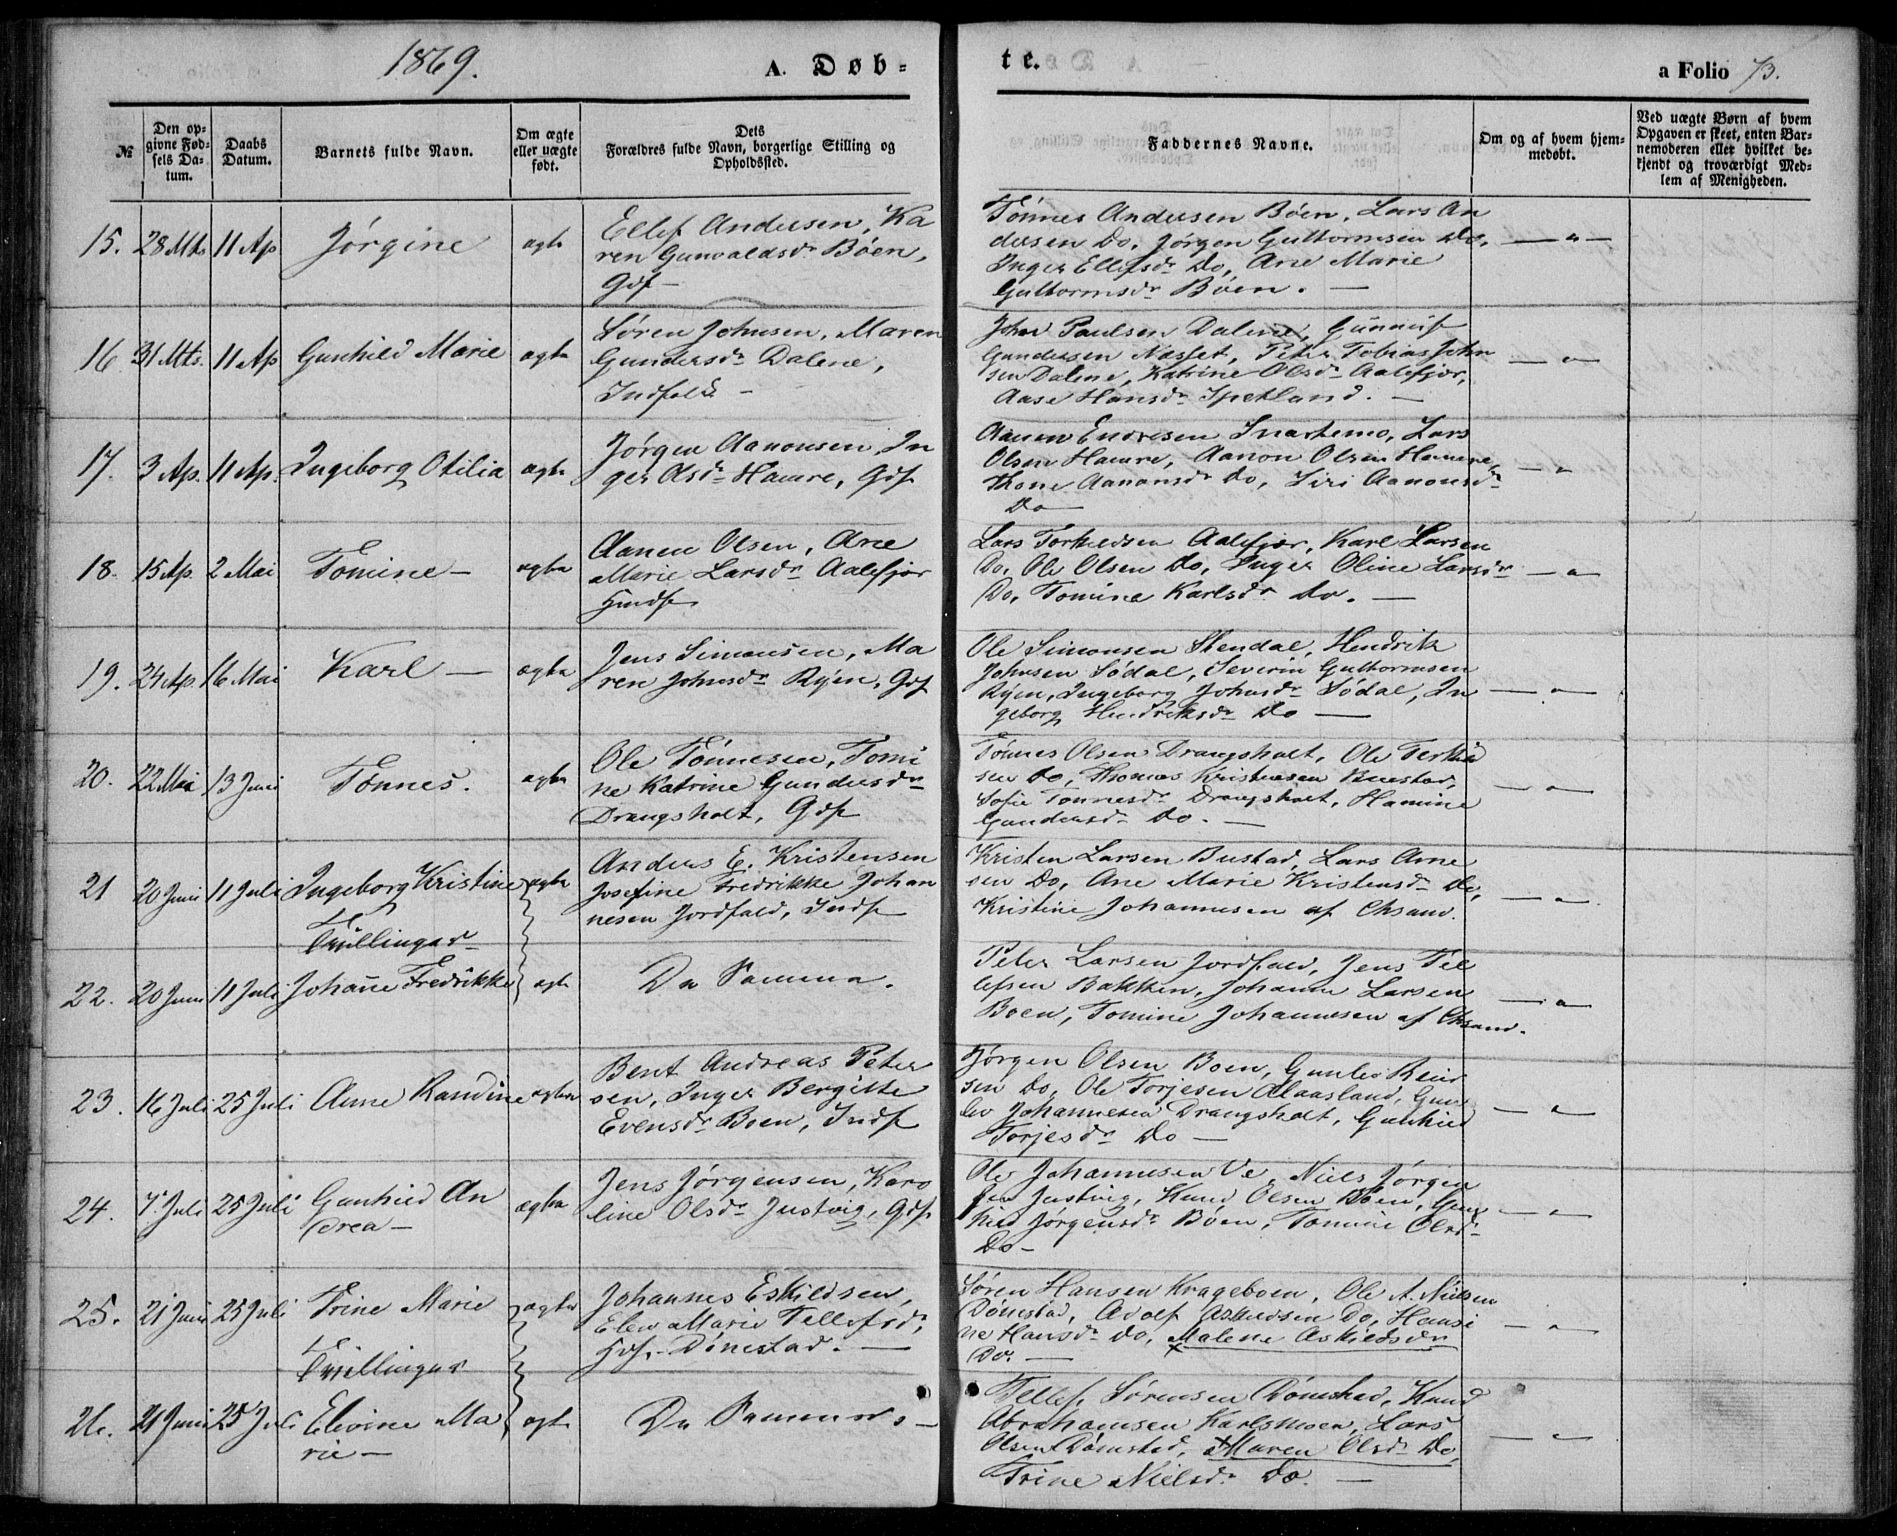 1869.
A. Døb-
te.
a Folio 73.
№
Den op-
givne Fød-
sels Da-
tum.
Daabs
Datum.
Barnets fulde Navn.
Om ægte
eller uægte
født.
Dets
Forældres fulde Navn, borgerlige Stilling og
Opholdssted.
Faddernes Navne.
Om og af hvem hjem-
medøbt.
Ved uægte Børn af hvem
Opgaven er skeet, enten Bar-
nemoderen eller hvilket be-
kjendt og troværdigt Med-
lem af Menigheden.
15. 28 Mts 11 Ap Jørgine ægte
Ellef Andersen, Ka
ren Gunvaldsdr Böen,
Gdf —
Tönnes Andersen Böen, Lars An
dersen Do, Jørgen Guttormsen Do,
Inger Ellefsdr Do, Ane Marie
Guttormsdr Böen. —
— " —
16 31 Mts. 11 Ap Gunhild Marie ægte
Sören Johnsen, Maren
Gundersdr Dalene,
Indfolk —
John Paulsen Dalene, Gunnuf
Gundersen Næsset, Peter Tobias John
sen Dalene, Katrine Olsdr Aalefjær,
Aase Hansdr Spetland. —
— " —
17. 3 Ap. 11 Ap. Ingeborg Otilia ægte
Jörgen Aanonsen, In
ger Asdr Hamre, Gdf
Aanen Endresen Snartemo, Lars
Olsen Hamre, Aanon Olsen Hamre,
Thone Aanonsdr Do, Siri Aanonsdr
Do —
— " —
18. 15 Ap. 2 Mai Tomine — ægte
Aanen Olsen, Ane
Marie Larsdr Aalefjær
Hmdf
Lars Torkildsen Aalefjær, Karl Larsen
Do, Ole Olsen Do, Inger Oline Larsdr
Do, Tomine Karlsdr Do. —
— " —
19. 24 Ap. 16 Mai Karl — ægte
Jens Simonsen, Ma
ren Johnsdr Ryen, Gdf
Ole Simonsen Stendal, Hendrik
Johnsen Södal, Severin Guttormsen
Ryen, Ingeborg Johnsdr Södal, In
geborg Hendriksdr Do —
— " —
20. 22 Mai 13 Juni Tönnes. ægte
Ole Tönnesen, Tomi
ne Katrine Gundersdr
Drangsholt, Gdf
Tönnes Olsen Drangsholt, Ole Terkil
sen Do, Thomas Kristensen Bustad,
Sofie Tönnesdr Drangsholt, Hamine
Gundersdr Do. —
— " —
21 20 Juni 11 Juli Ingeborg Kristine ægte
Tvillinger
Anders E. Kristensen
Josefine Fredrikke Johan
nesen Jordfald, Indf
Kristen Larsen Bustad, Lars Arne
sen Do, Ane Marie Kristensdr Do,
Kristine Johannesen af Chsand.
— " —
22. 20 Juni 11 Juli Johanne Fredrikke ægte
De Samme.
Peter Larsen Jordfald, Jens Tel
lefsen Bakken, Johanne Larsen
Boen, Tomine Johannesen af Chsand.
— " —
23. 16 Juli 25 Juli Anne Randine ægte
Bent Andreas Peter
sen, Inger Bergitte
Evensdr Boen, Indf
Jörgen Olsen Boen, Gunlev Reier
sen Do, Ole Torjesen Aaasland, Gun
lev Johannesen Drangsholt, Gunhild
Torjesdr Do —
— " —
24. 7 Juli 25 Juli Gunhild An
drea — ægte
Jens Jörgensen, Karo
line Olsdr Justvig, Gdf
Ole Johannesen Ve, Niels Jörgen
sen Justvig, Knud Olsen Böen, Gun
hild Jörgensdr Böen, Tomine Olsdr
Do —
— " —
25. 21 Juni 25 Juli Trine Marie ægte
Tvillinger
Johannes Eskildsen,
Elen Marie Tellefsdr,
Gdf. Dönestad. —
Sören Hansen Krageboen, Ole A. Nielsen
Dönestad, Adolf Askildsen Do, Hansi
ne Hansdr Do, Malene Askildsdr
Do. —
— " —
26. 21 Juni 25 Juli Elevine Ma
rie — ægte
De Samme. —
Tellef Sörensen Dönestad, Knud
Abrahamsen Karlsmoen, Lars
Olsen Dönestad, Maren Olsdr Do,
Trine Nielsdr Do. —
— " —